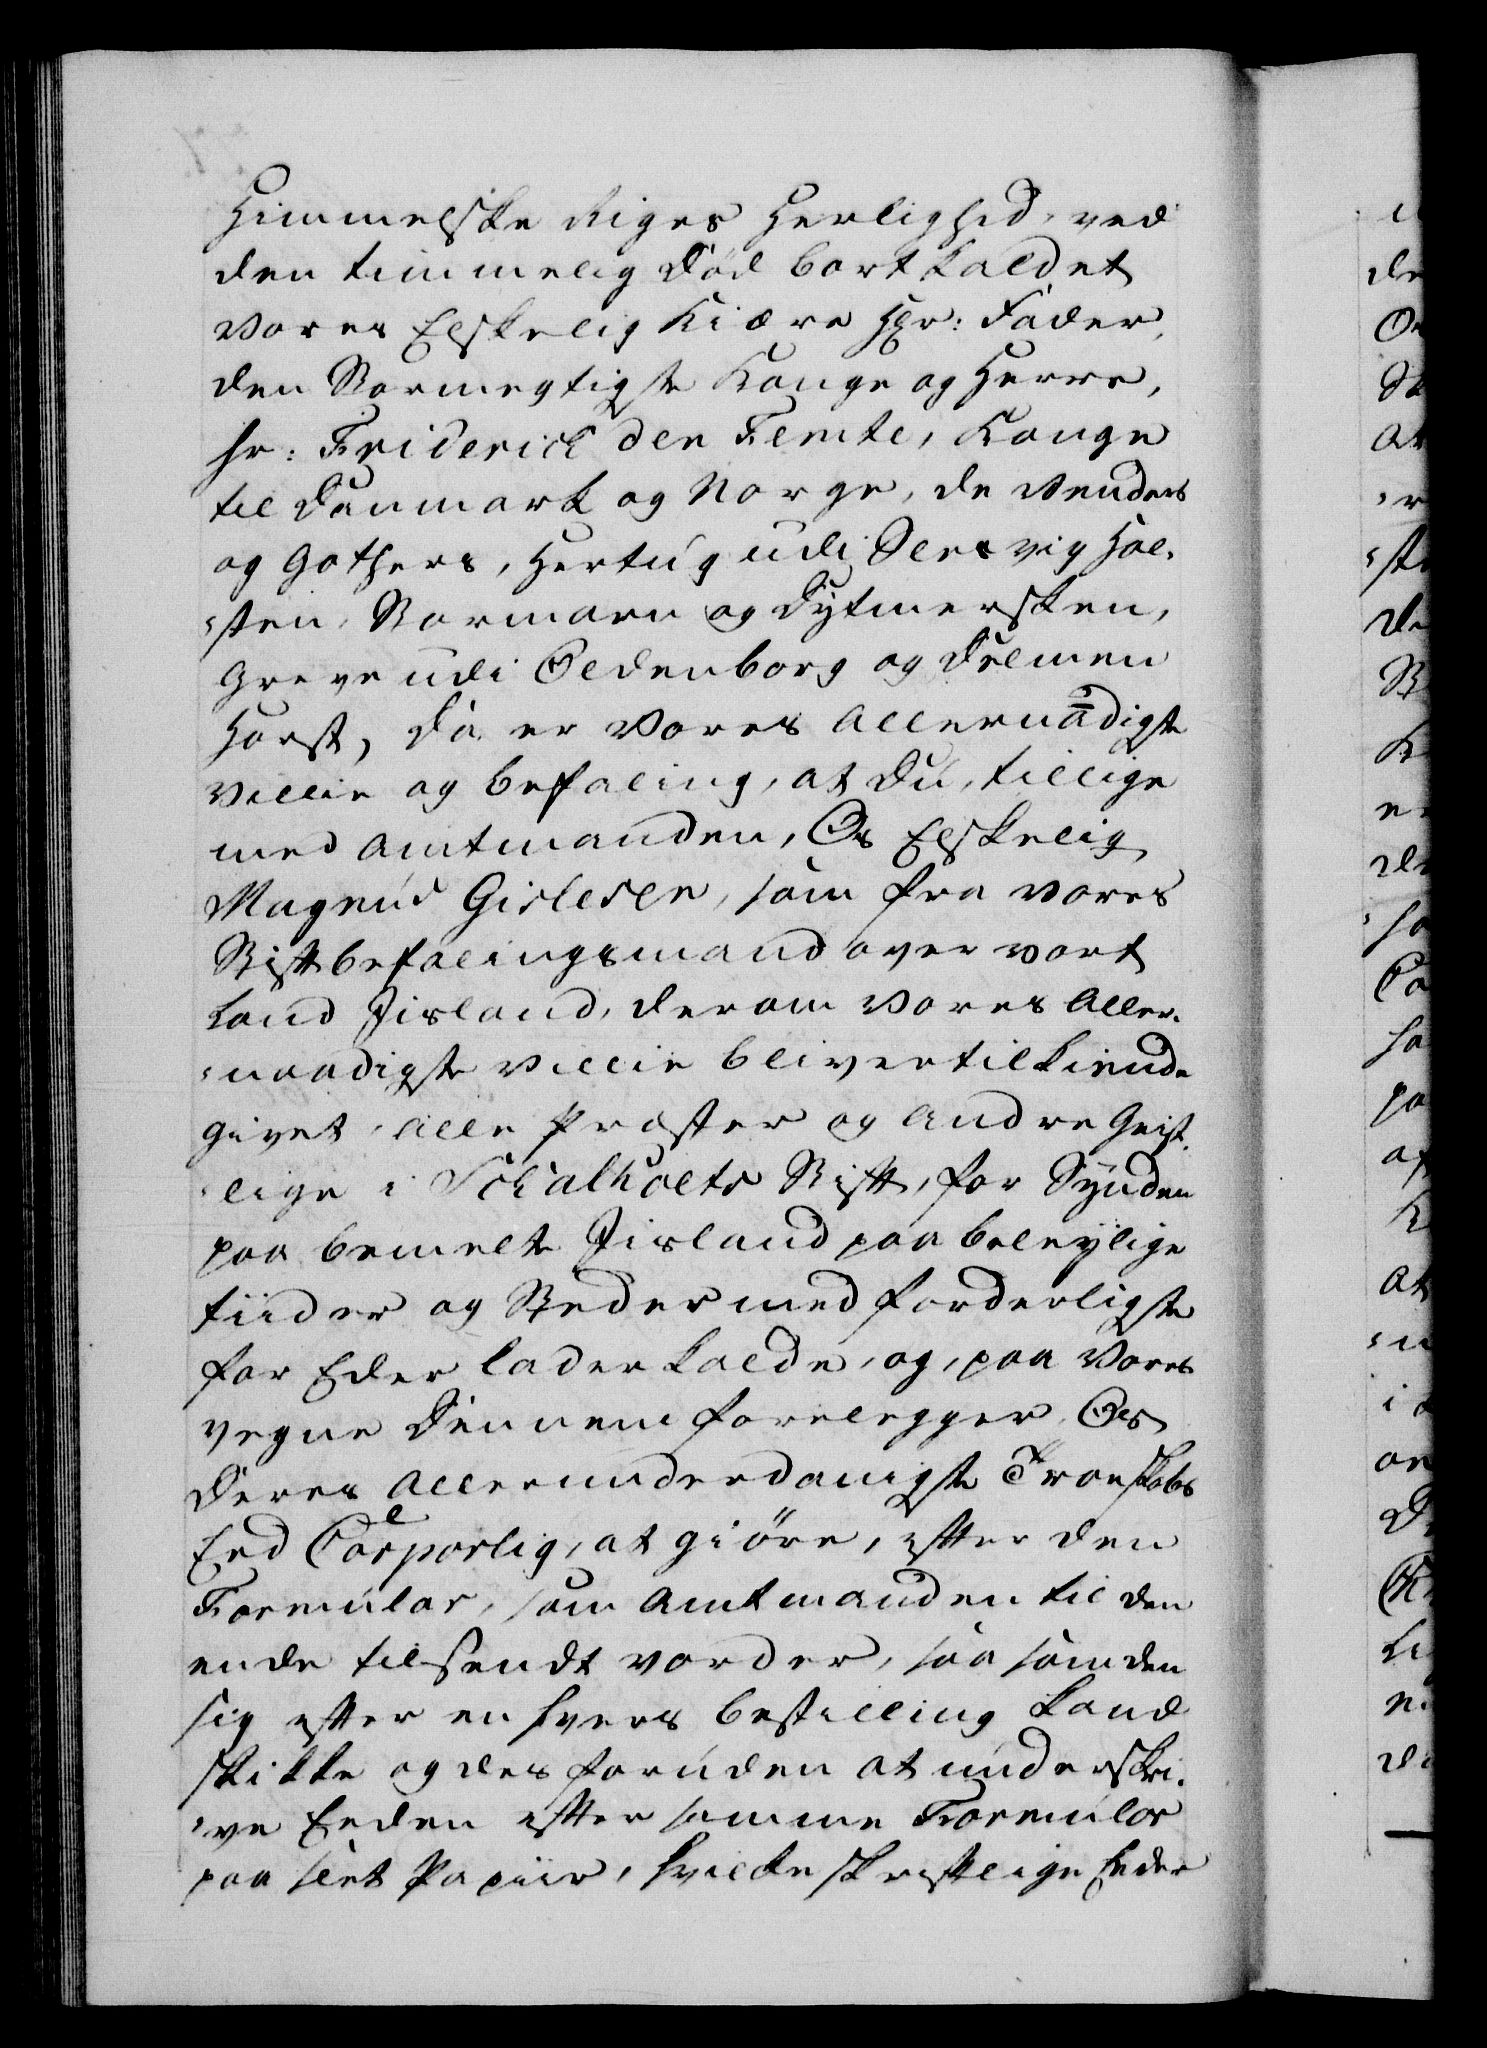 Himmelske Riges Herlighed, ved
den timmelig Død bortkaldet
Vores Elskelig Kiære Hr: Fader,
den Stormegtigste Konge og Herre,
hr: Friderich den Femte, Konge
til Danmark og Norge, de Venders
og Gothers, Hertug udi Slesvig Hol-
-sten, Stormarn og Dytmersken,
Greve udi Oldenborg og Delmen
Horst, Da er Vores Allernaadigste
Villie og befaling, at Du, tillige
med Amtmanden, Os Elskelig
Magnus Gislesen, som fra Vores
Stiftbefalingsmand over vort
Land Iisland, derom Vores Aller-
-naadigste Villie bliver tilkiende
givet, alle Præster og andre Geist-
-lige i Schalholts Stift, for Synden
paa bemelte Iisland paa beleylige
tiider og Steder med forderligste
for Eder lader kalde, og, paa Vores
vegne Dennem forelegger, Os
Deres allerunderdanigste Troeskabs
Eed Corporlig, at giøre, efter den
Formular, som Amtmanden til den
ende tilsendt vorder, saa som den
sig efter en hvers bestilling kand
skikke og des foruden at underskri-
-ve Eeden efter samme Formular
paa slet Papiir, hvilke skriftlige Eeder